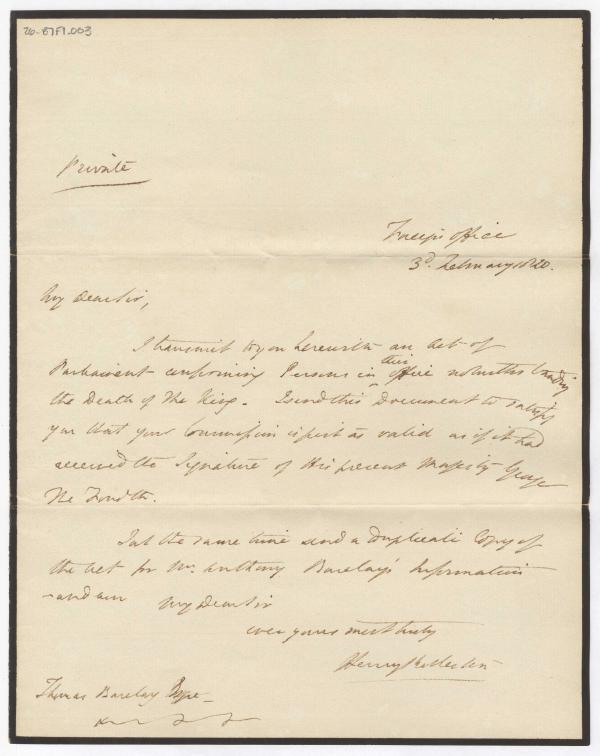 26-8717.003
Private
Foreign Office
3d. February 1820.
My dear Sir,
I transmit to you herewith an Act of
Parliament confirming Persons in their Office notwithstanding
the Death of The King. I send this Document to satisfy
you that your Commission is just as valid as if it had
received the Signature of His present Majesty George
The Fourth.
I at the same time send a Duplicate Copy of
the Act for Mr. Anthony Barclay's Information
and am My Dear Sir
ever yours most truly
Henry
Thomas Barclay Esqre